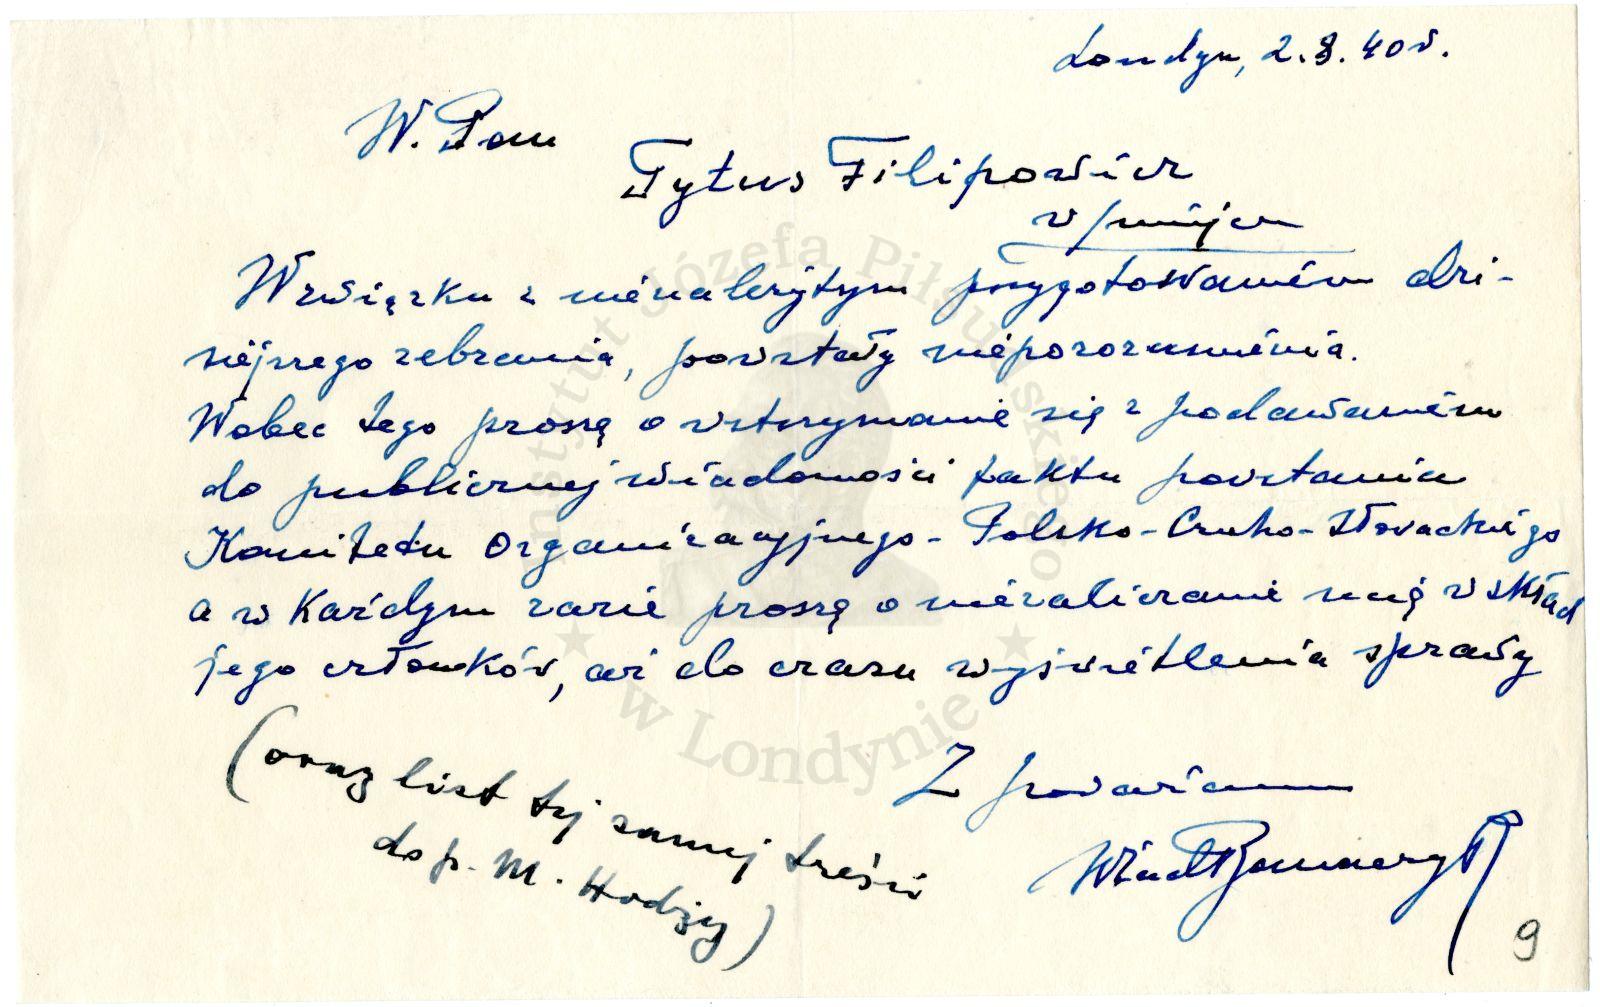 Londyn, 2.8.40 r.
W. Pan
Tytus Filipowicz
w miejscu
W związku z nienależytym przygotowaniem dzi-
siejszego zebrania, powstały nieporozumienia.
Wobec tego proszę o wstrzymanie się z podawaniem
do publicznej wiadomości faktu powstania
Komitetu Organizacyjnego - Polsko-Czecho-Słowackiego
a w każdym razie proszę o niezaliczanie mnie w skład
jego członków, aż do czasu wyświetlenia sprawy
Z poważaniem
(oraz list tej samej treści
do p. M. Hodży)
9
Instytut Józefa Piłsudskiego
w Londynie